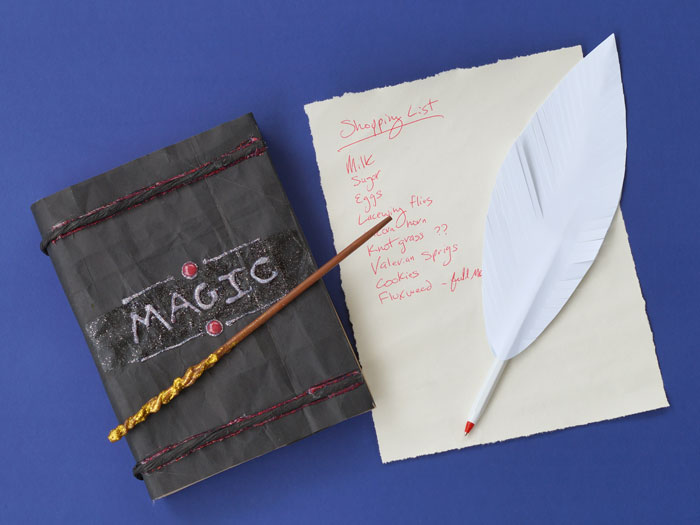 MAGIC
Shopping List
Milk
Sugar
Eggs
Lacewing flies
horn
Knotgrass ??
Valerian Sprigs
Cookies
Fluxweed - full